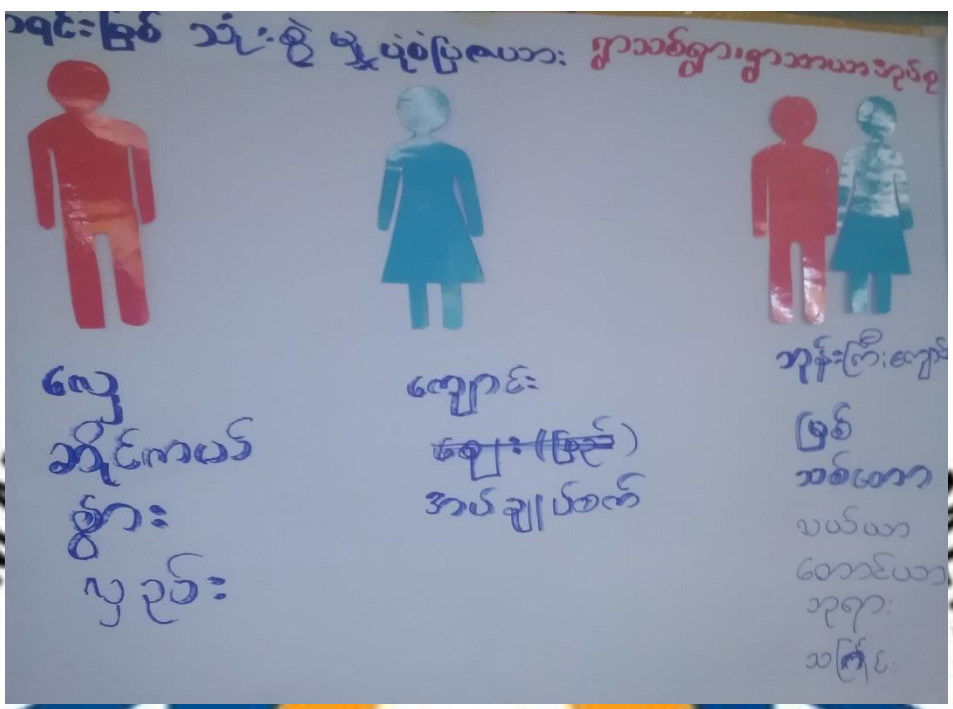 အရင်းမြစ် သုံးစွဲ မှု ပုံစံပြဇယား ရွာသစ်ရွာ၊ရွာသာယာအုပ်စု
လှေ
ဆိုင်ကယ်
နွား
လှည်း
ကျောင်း
ဈေး (မြည်)
အပ်ချုပ်စက်
ဘုန်းကြီးကျောင်း
မြစ်
သစ်တော
လယ်ယာ
တောင်ယာ
ဘုရား
သင်္ချိုင်း